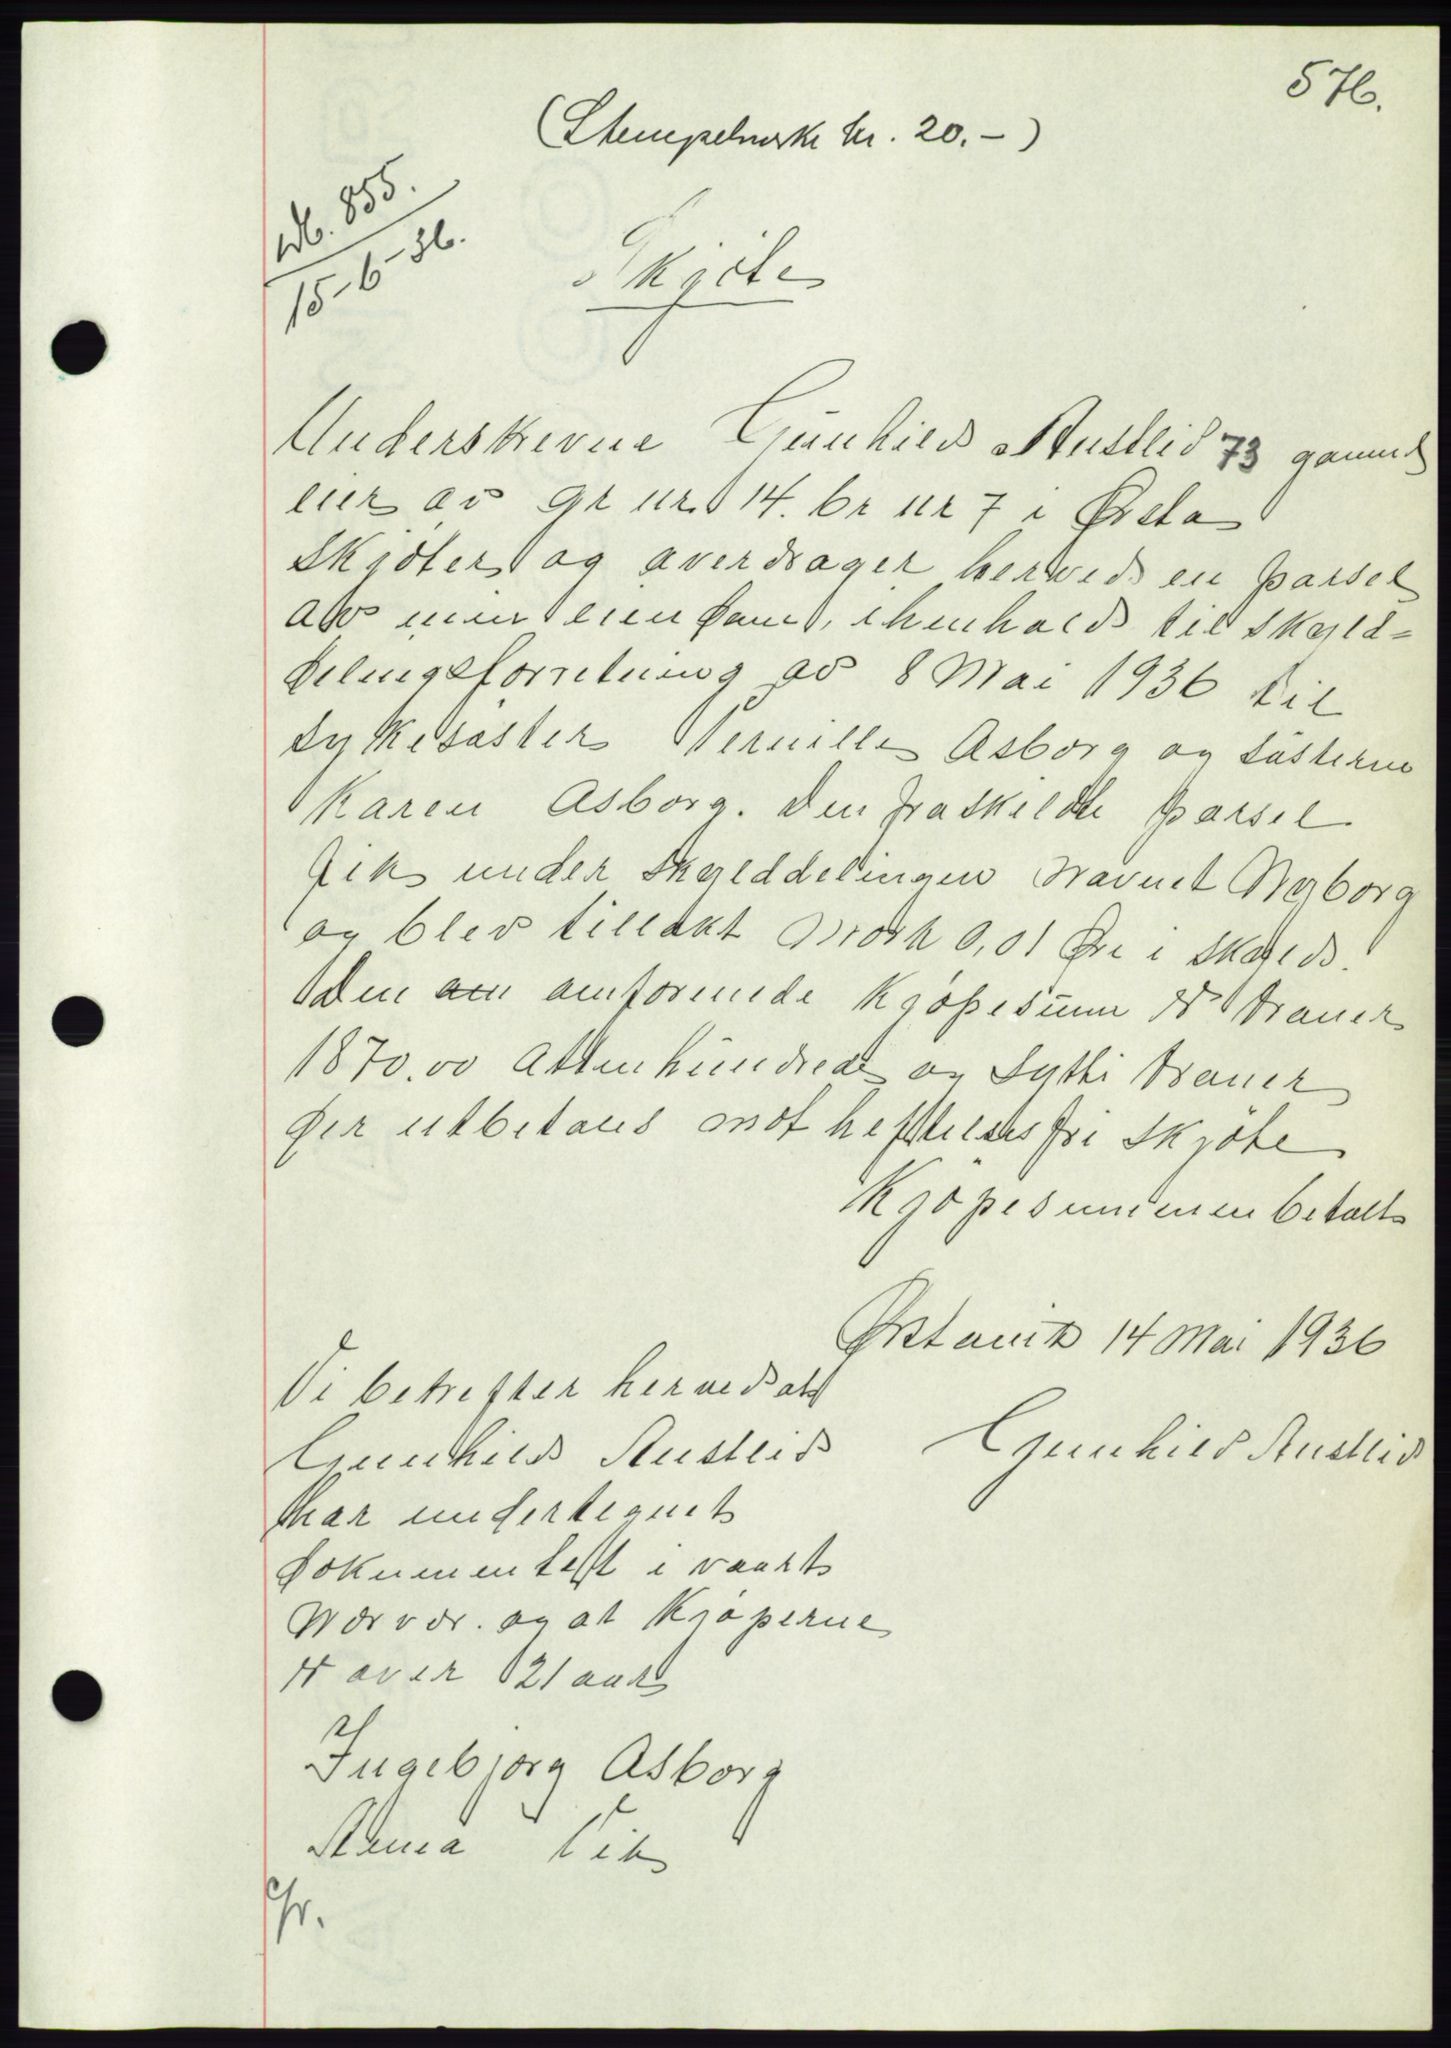 576.
(Stempelmerke kr. 20.-)
Nr. 855.
15-6-36.
Skjöte
Underskrevne Gunhild Austlid 73 gammel
eier av gr nr. 14. br nr 7 i Ørsta
skjöter og averdrager herved en parsel
av min eiendom, ihenhold til skyld=
delingsforretning av 8 Mai 1936 til
sykesöster Pernille Asborg og Søsteren
Karen Asborg. Den fraskildte parsel
fik under skylddelingen navnet Nyborg
og blev tillakt mark 0,01 Øre i skyld.
Den om omforenede kjöpesum er kroner
1870.00 Attenhundrede og Sytti kroner
der utbetales mot heftelsesfri skjöte
Kjöpesummen betalt
Ørstavik 14 Mai 1936
Vi betrefter herved at
Gunhild Austlid
Gunhild Austlid
har undertegnet
dokumentet i vaart
nærvær. og at Kjöperne
er over 21 aar
Ingebjörg Asborg
Vik